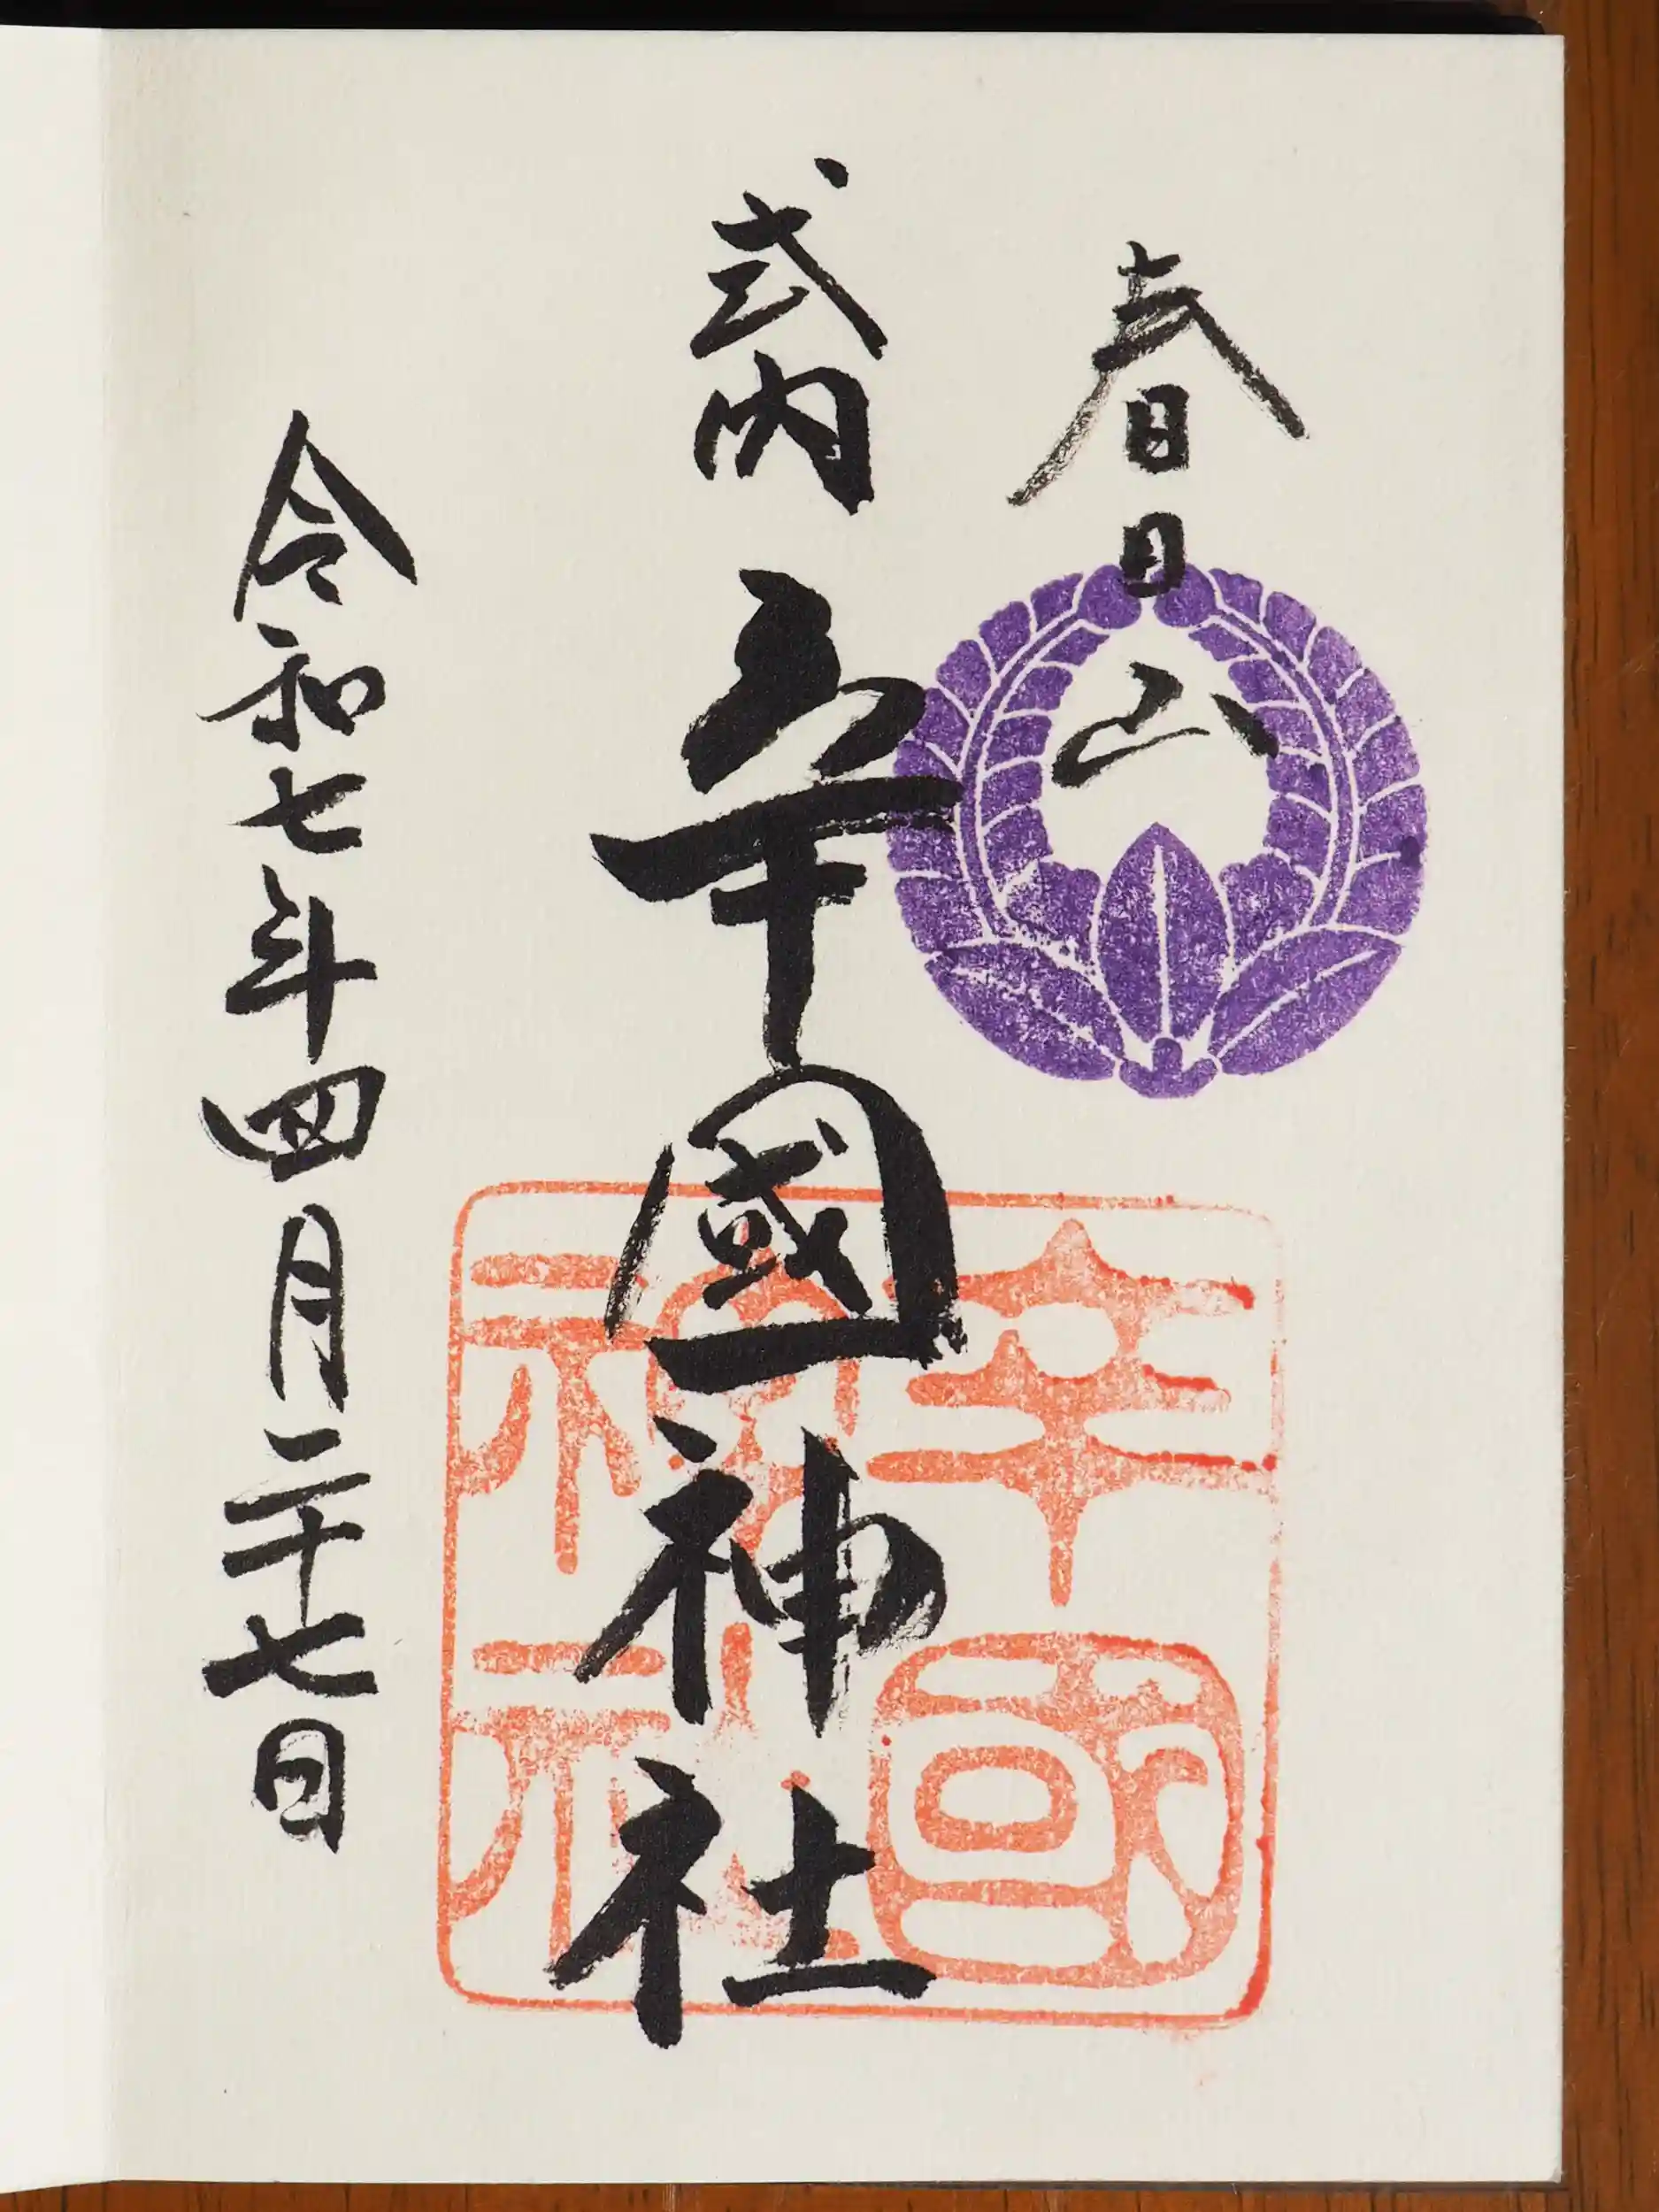 春日山
式内辛國神社
令和七年四月二十七日
辛國神社